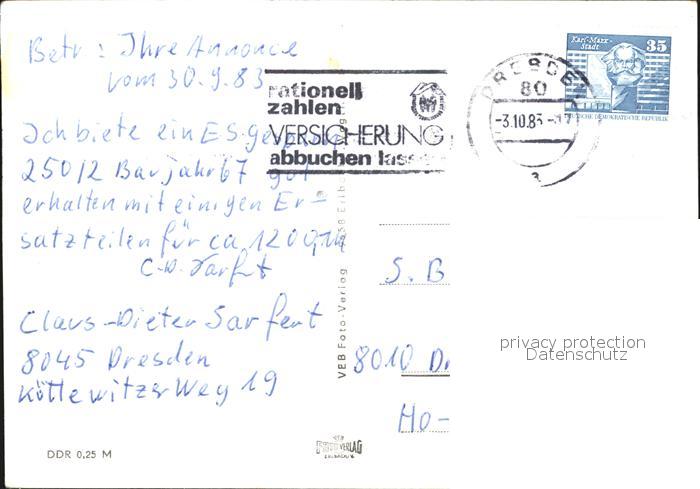 Betr: Ihre Annonce
vom 30.9.83
Ich biete ein ES-
250/2 Baujahr 67 gut
erhalten mit einigen Er-
satzteilen für ca 1200,- M
C.-D. Sarfert
Claus-Dieter Sarfert
8045 Dresden
Kottewitzer Weg 19
DDR 0,25 M
rationell
zahlen
VERSICHERUNG
abbuchen lassen
VEB Foto-Verlag
DRESDEN
80
-3.10.83
a
Karl-Marx-
Stadt
35
DEUTSCHE DEMOKRATISCHE REPUBLIK
S. B
8010 Dr
Ho-
privacy protection
Datenschutz